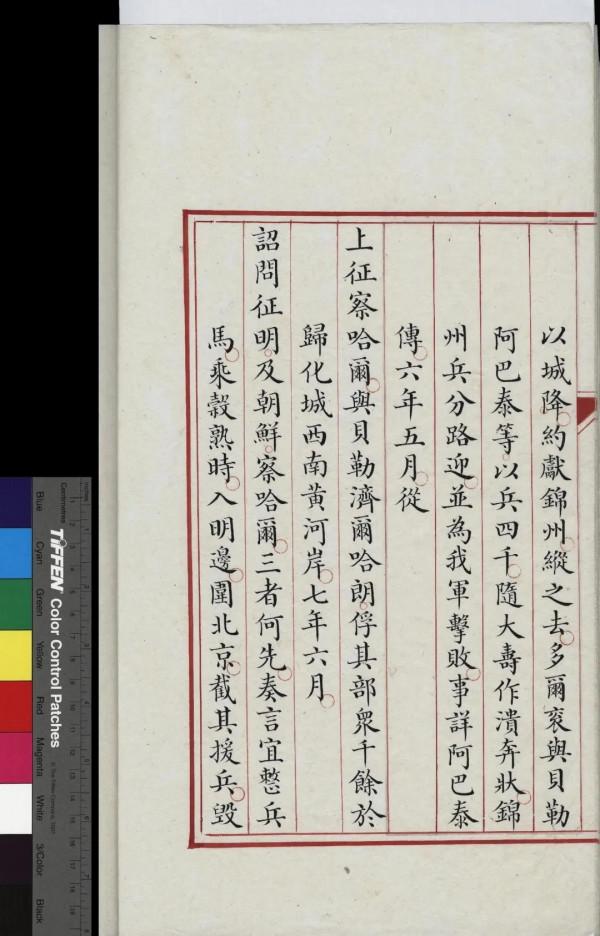 以城降約獻錦州縱之去多爾袞與貝勒
阿巴泰等以兵四千隨大壽作潰奔狀錦
州兵分路迎並為我軍擊敗事詳阿巴泰
傳六年五月從
上征察哈爾與貝勒濟爾哈朗俘其部眾千餘於
歸化城西南黃河岸七年六月
詔問征明及朝鮮察哈爾三者何先奏言宜整兵
馬乘穀熟時入明邊圍北京截其援兵毀
TIFFEN Color Control Patches
Centimetres
Blue Cyan Green Yellow Red Magenta White 3/Color Black